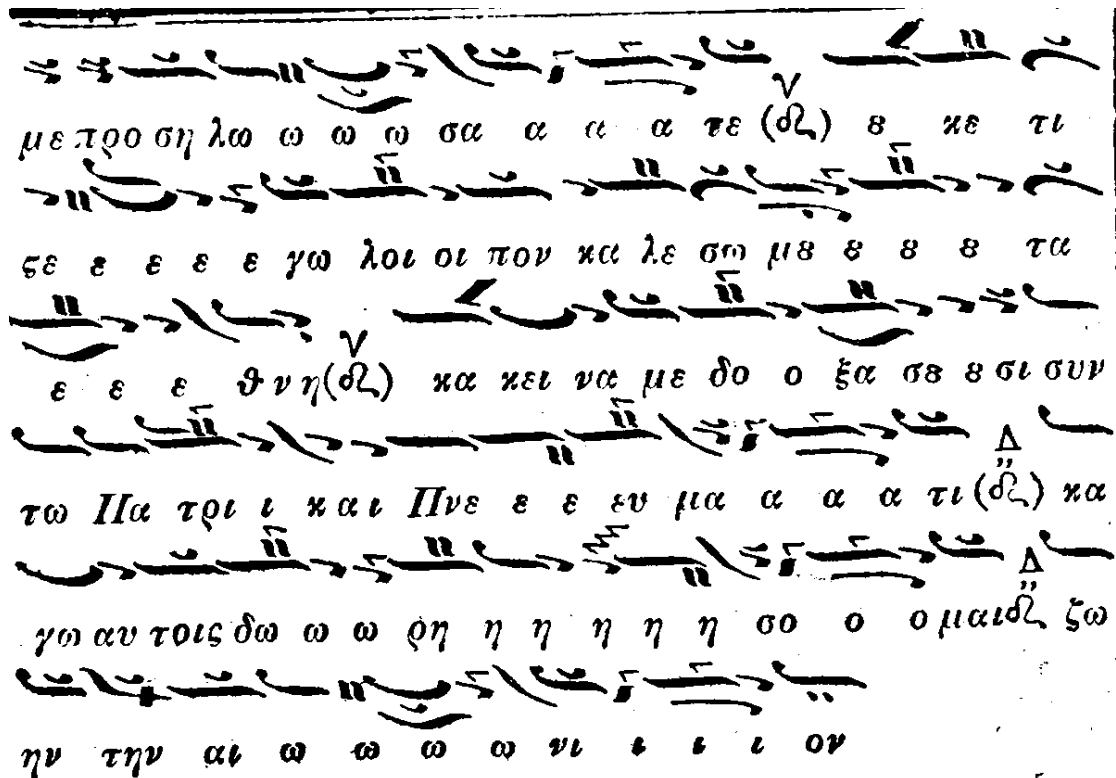 με προ ση λω ω ω ω σα α α α τε (δι) ȣ κε τι
ϛε ε ε ε ε γω λοι οι πον κα λε σω μȣ ȣ ȣ ȣ τα
ε ε ε θν η (δι) κα κει να με δο ο ξα σȣ ȣ σι συν
τω Πα τρι ι και Πνε ε ε ευ μα α α α τι (δι) κα
γω αυ τοις δω ω ω ρη η η η η η σο ο ο μαι δι ζω
ην την αι ω ω ω ω νι ι ι ι ον